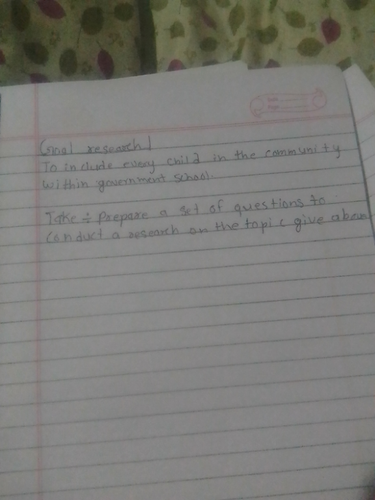 Goal research
To include every child in the community
within government school.
Take ÷ Prepare a set of questions to
conduct a research on the topic give above